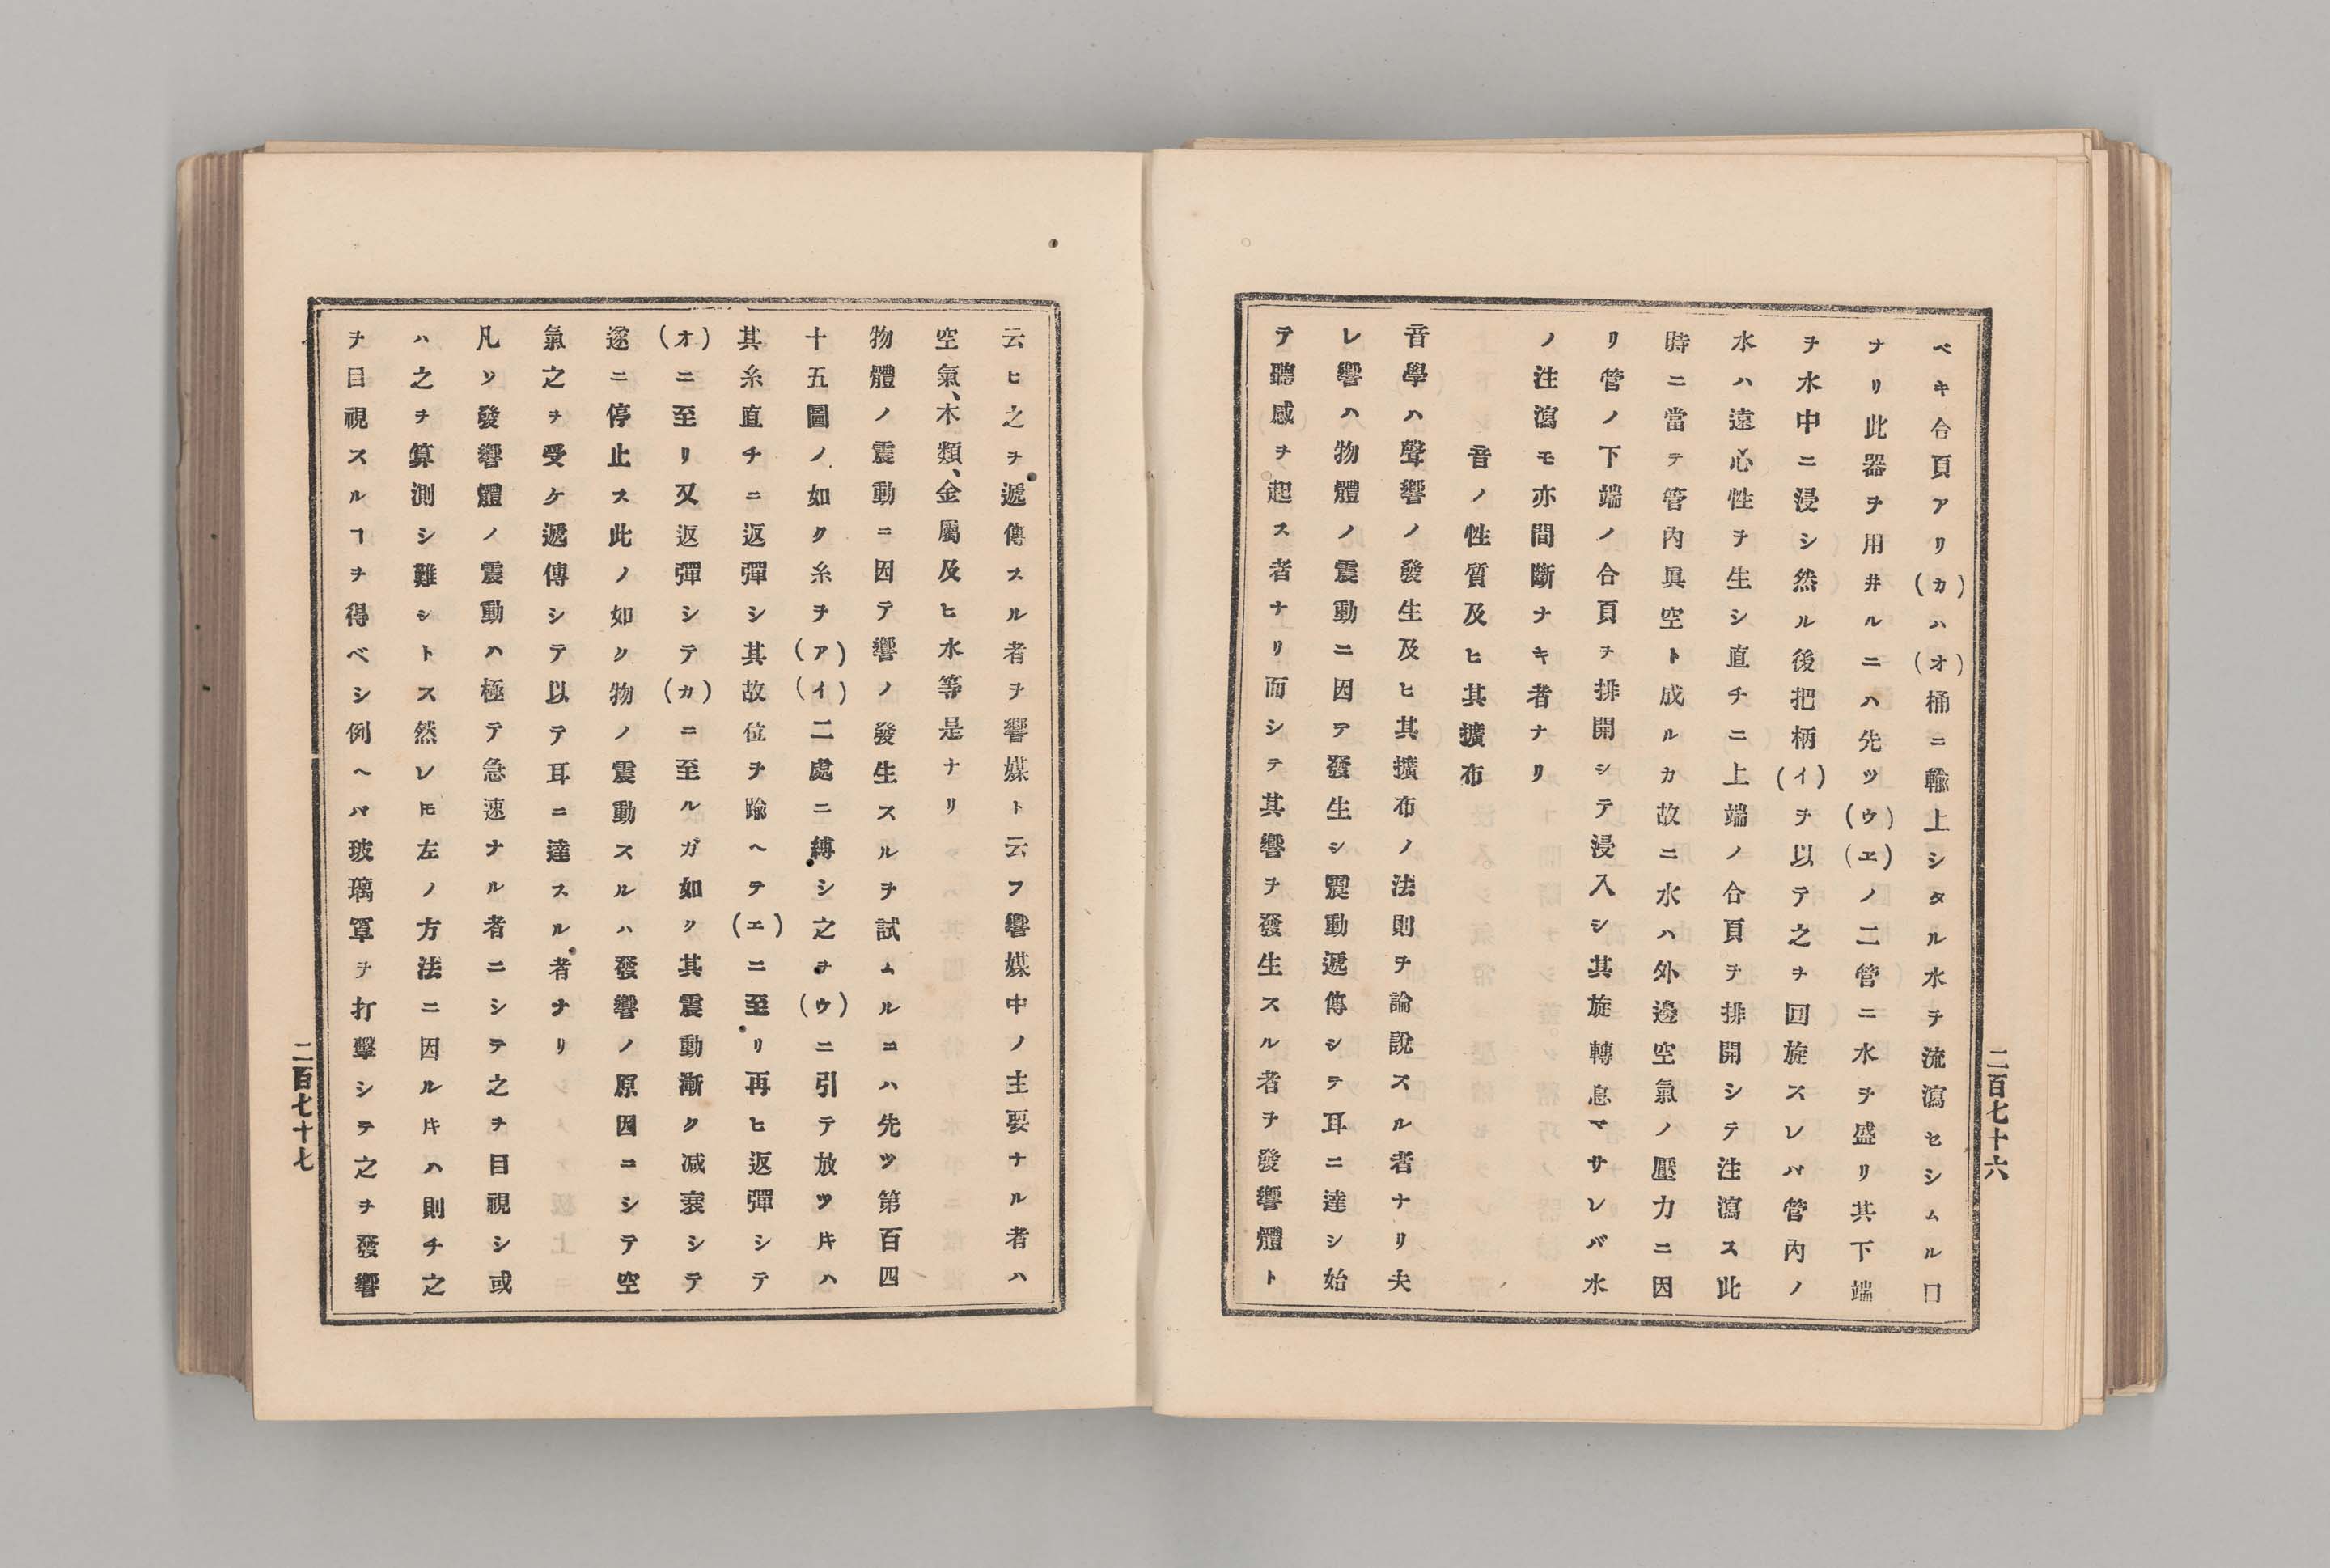 ベキ合頁アリ(カ)ハ(オ)桶ニ輸上シタル水ヲ流瀉セシムル口
ナリ此器ヲ用井ルニハ先ツ(ウ)(ヱ)ノ二管ニ水ヲ盛リ其下端
ヲ水中ニ浸シ然ル後把柄(イ)ヲ以テ之ヲ囘旋スレバ管內ノ
水ハ遠心性ヲ生シ直チニ上端ノ合頁ヲ排開シテ注瀉ス此
時ニ當テ管内眞空ト成ルカ故ニ水ハ外邊空氣ノ壓力ニ因
リ管ノ下端ノ合頁ヲ排開シテ浸入シ其旋轉息マサレバ水
ノ注瀉モ亦間斷ナキ者ナリ
音ノ性質及ヒ其擴布
音學ハ聲響ノ發生及ヒ其擴布ノ法則ヲ論說スル者ナリ夫
レ響ハ物體ノ震動ニ因テ發生シ震動遞傳シテ耳ニ達シ始
テ聽感ヲ起ス者ナリ而シテ其響ヲ發生スル者ヲ發響體ト
二百七十六
云ヒ之ヲ遞傳スル者ヲ響媒ト云フ響媒中ノ主要ナル者ハ
空氣、木類、金屬及ヒ水等是ナリ
物體ノ震動ニ因テ響ノ發生スルヲ試ムルニハ先ツ第百四
十五圖ノ如ク糸ヲ(ア)(イ)二處ニ縛シ之ヲ(ウ)ニ引テ放ツ𪜈ハ
其糸直チニ返彈シ其故位ヲ踰ヘテ(エ)ニ至リ再ヒ返彈シテ
(オ)ニ至リ又返彈シテ(カ)ニ至ルガ如ク其震動漸ク减衰シテ
遂ニ停止ス此ノ如ク物ノ震動スルハ發響ノ原因ニシテ空
氣之ヲ受ケ遞傳シテ以テ耳ニ達スル者ナリ
凡ソ發響體ノ震動ハ極テ急速ナル者ニシテ之ヲ目視シ或
ハ之ヲ算測シ難シトス然レ𪜈左ノ方法ニ因ルキハ則チ之
ヲ目視スルヿヲ得ベシ例ヘバ玻璃罩ヲ打擊シテ之ヲ發響
二百七十七